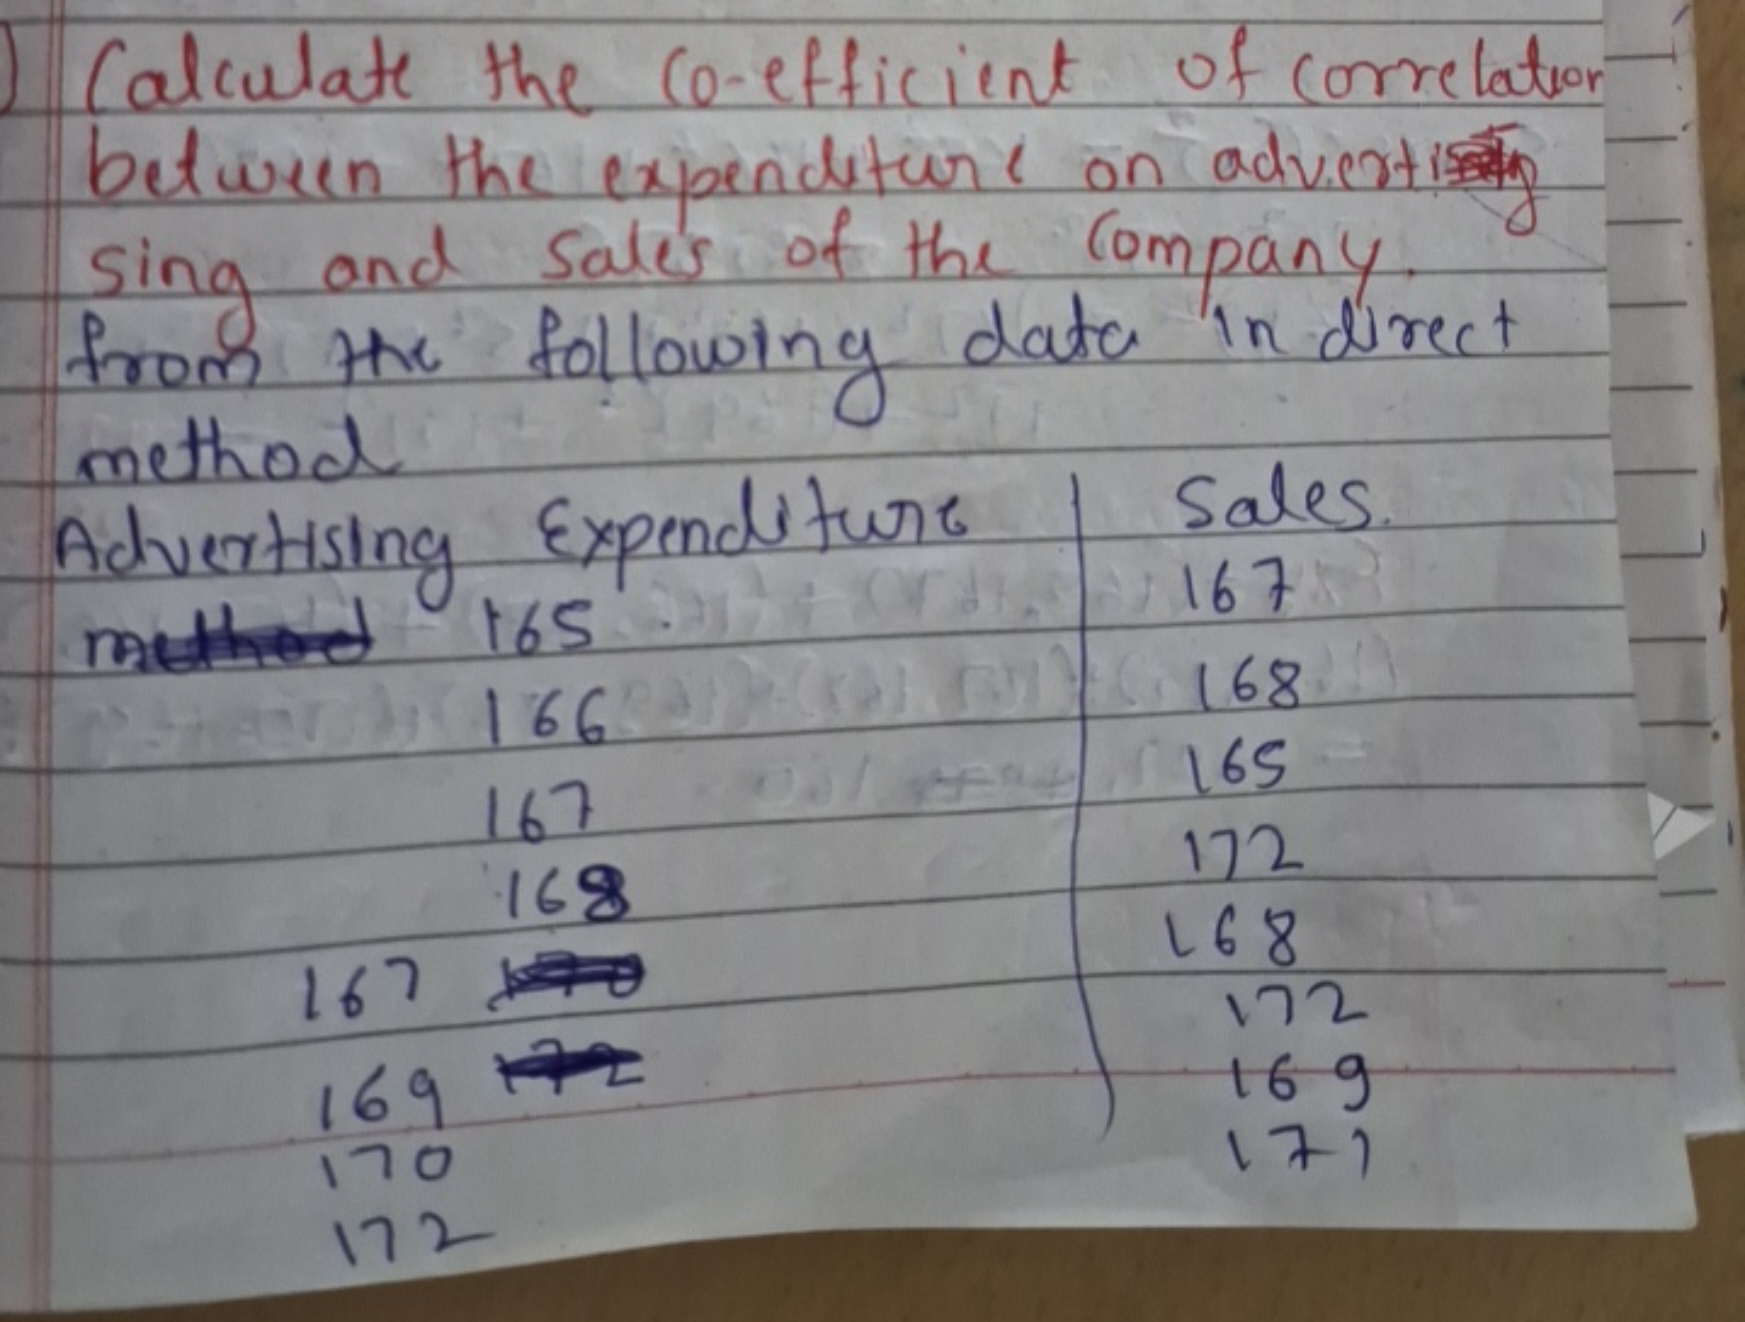 Calculate the Co-efficient of correlation
between the expenditure on adverti
sing and sales of the Company.
from the following data in direct
method
Advertising Expenditure | Sales.
165 167
166 168
167 165
168 172
167 168
169 172
170 169
172 171